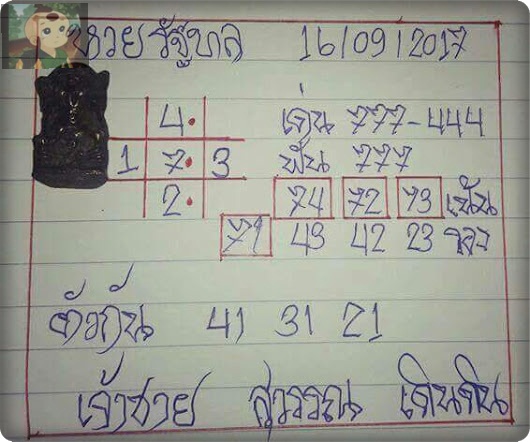 หวยรัฐบาล 16/09/2017
4. เด่น 777-444
1 7. 3 ฟัน 777
2. 74 72 73 เน้น
71 43 42 23 รอง
ตัวกัน 41 31 21
เจ้าชาย สุวรรณ เดินดิน